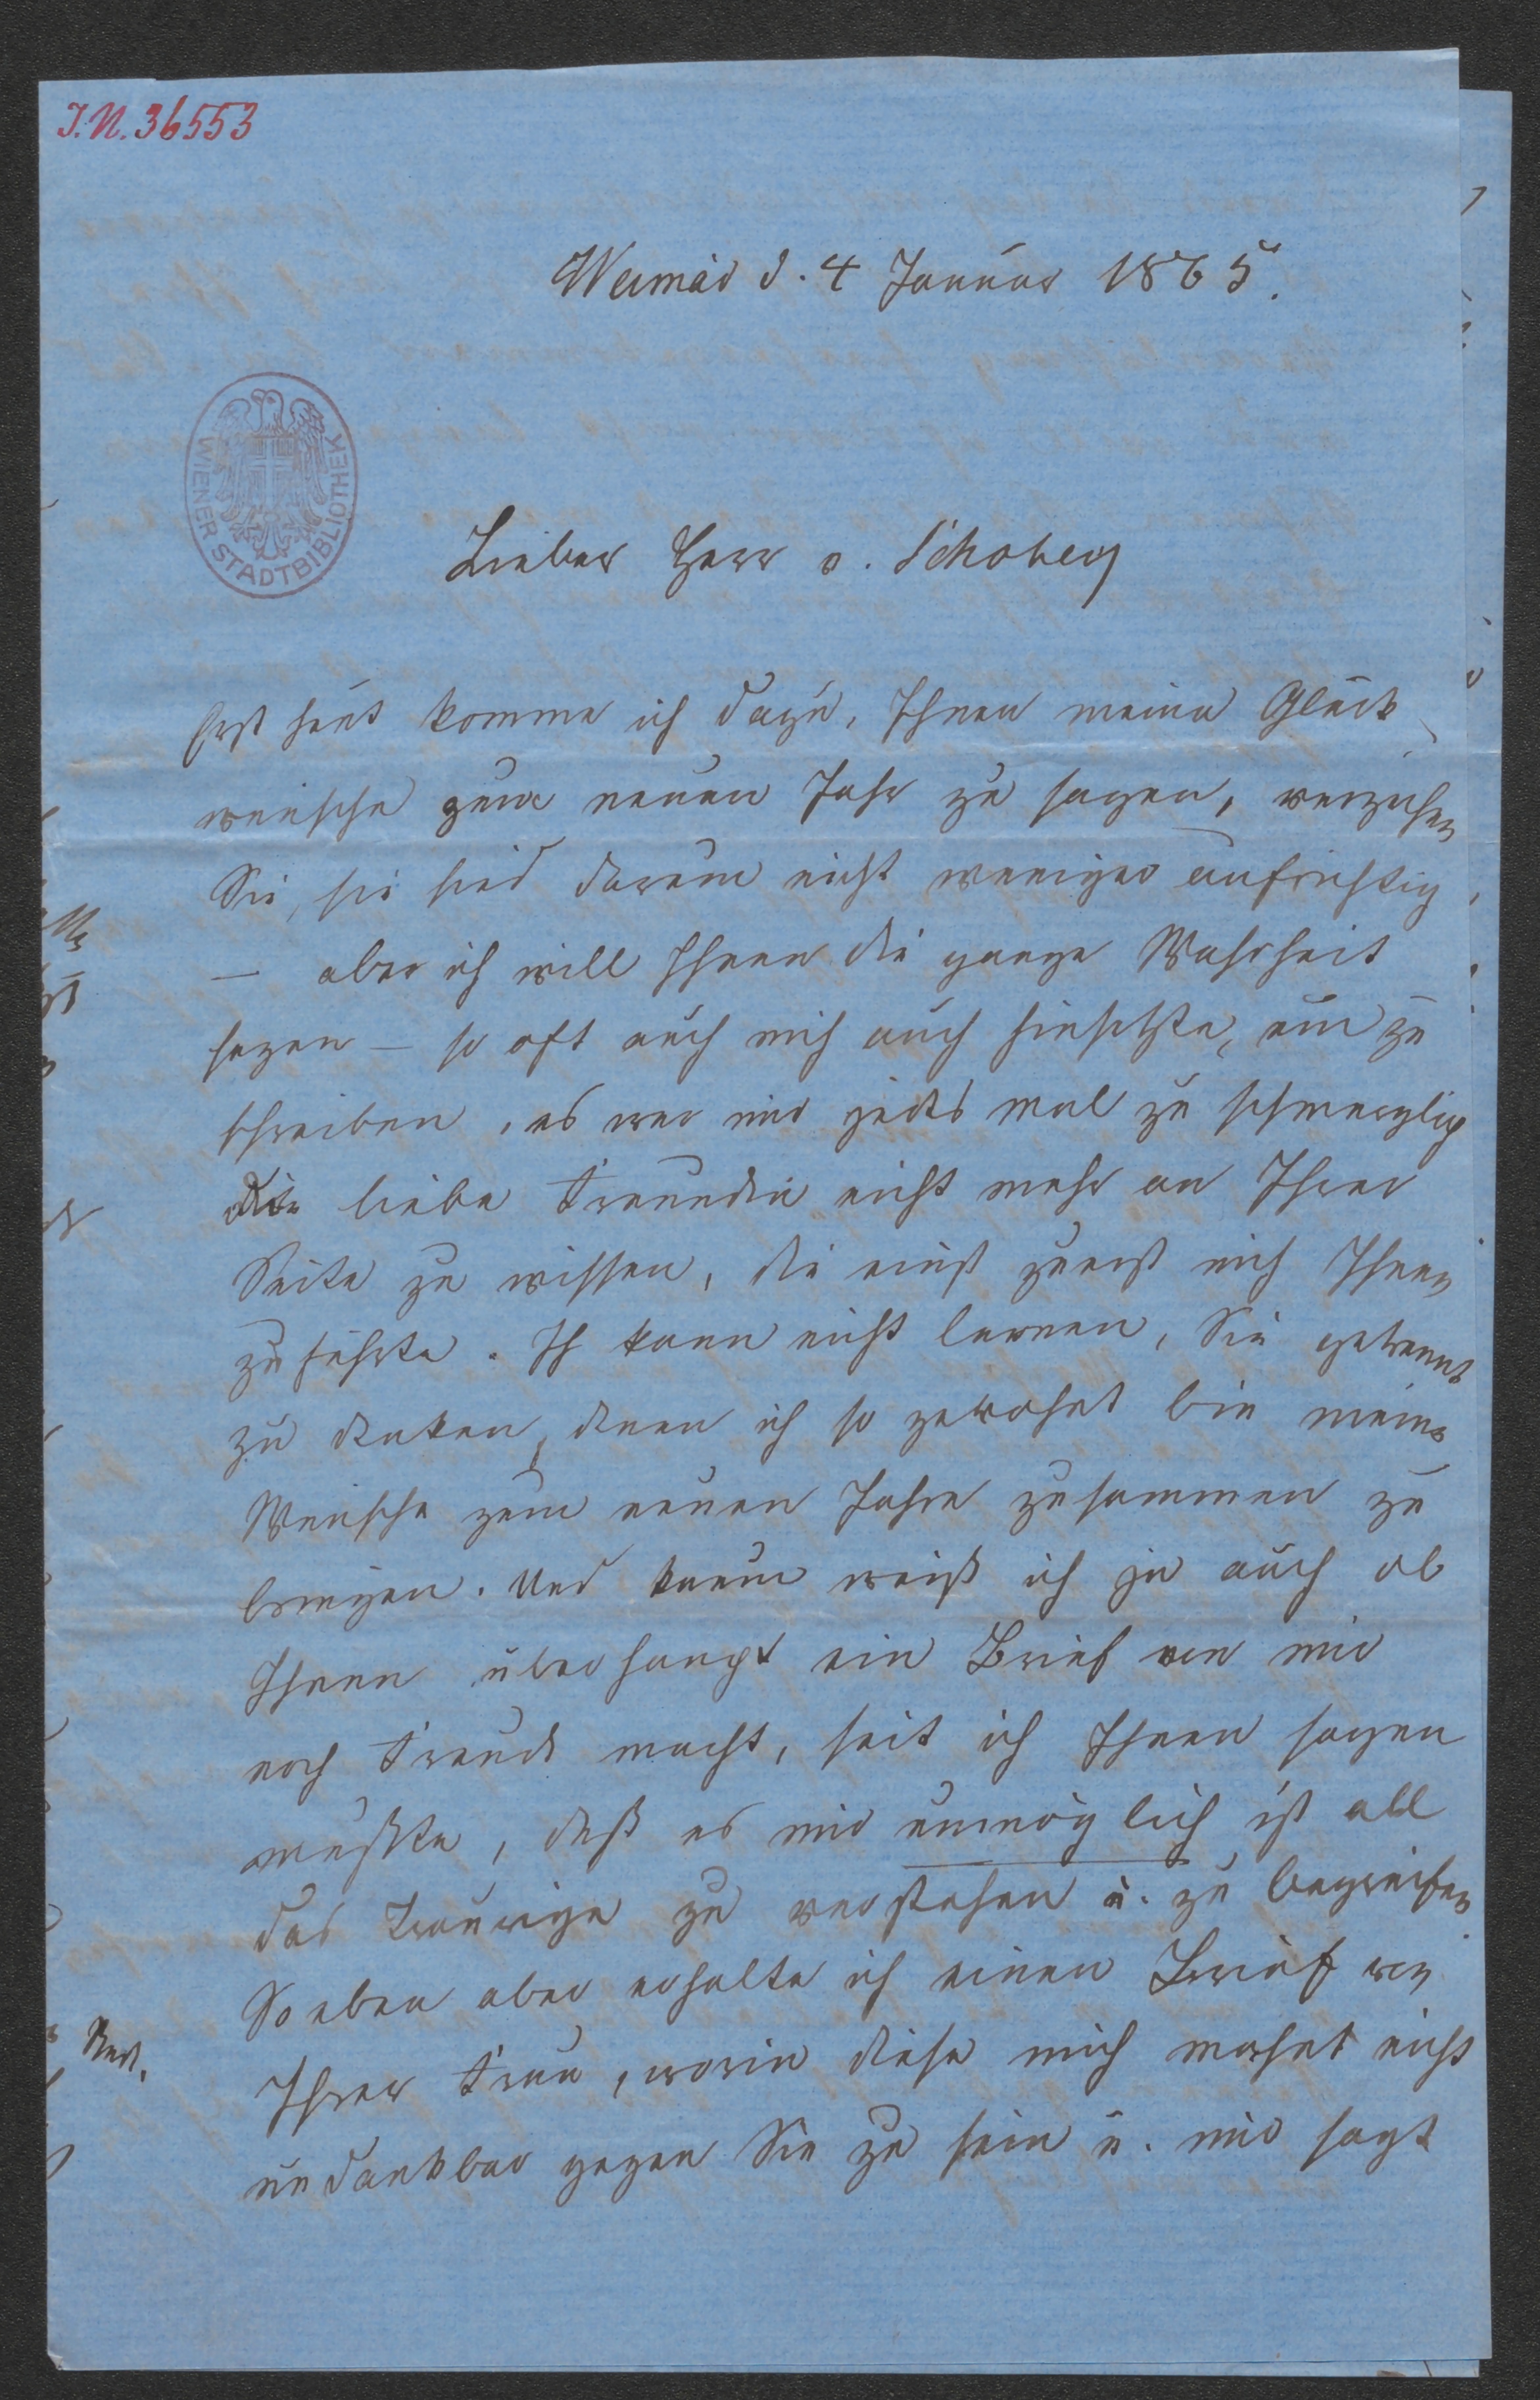 I.N. 36553
Weimar d. 4 Januar 1865.
WIENER STADTBIBLIOTHEK
Lieber Herr v. Schober
Erst heut komme ich dazu, Ihnen meine Glück
wünsche zum neuen Jahr zu sagen, verzeihen
Sie, sie sind darum nicht weniger aufrichtig
— aber ich will Ihnen die ganze Wahrheit
sagen — so oft auch mich auch hinsetzte, um zu
schreiben, es war mir jedes mal zu schmerzlich
die liebe Freundin nicht mehr an Ihrer
Seite zu wissen, die einst zuerst mich Ihnen
zuführte. Ich kann nicht lernen, Sie getrennt
zu denken, denen ich so gewohnt bin meine
Wünsche zum neuen Jahre zusammen zu
bringen. Und kaum weiß ich ja auch ob
Ihnen überhaupt ein Brief von mir
noch Freude macht, seit ich Ihnen sagen
mußte, daß es mir unmöglich ist all
das Traurige zu verstehen u. zu begreifen
So eben aber erhalte ich einen Brief von
Ihrer Frau, worin diese mich mahnt nicht
undankbar gegen Sie zu sein u. mir sagt